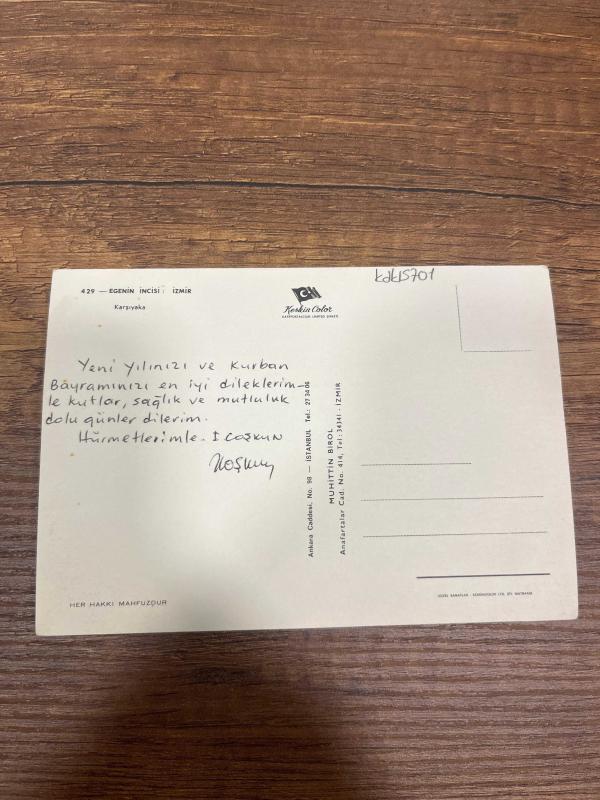 429 — EGENİN İNCİSİ : İZMİR
Karşıyaka
Keskin Color
KARTPOSTALCILIK LIMITED ŞİRKETİ
kdk15701
Yeni yılınızı ve Kurban
Bayramınızı en iyi dileklerim-
le kutlar, sağlık ve mutluluk
dolu günler dilerim.
Hürmetlerimle. I COŞKUN
Ankara Caddesi, No: 98 — İSTANBUL Tel.: 27 34 06
MUHİTTİN BİROL
Anafartalar Cad. No. 414, Tel: 34341 - İZMİR
HER HAKKI MAHFUZDUR